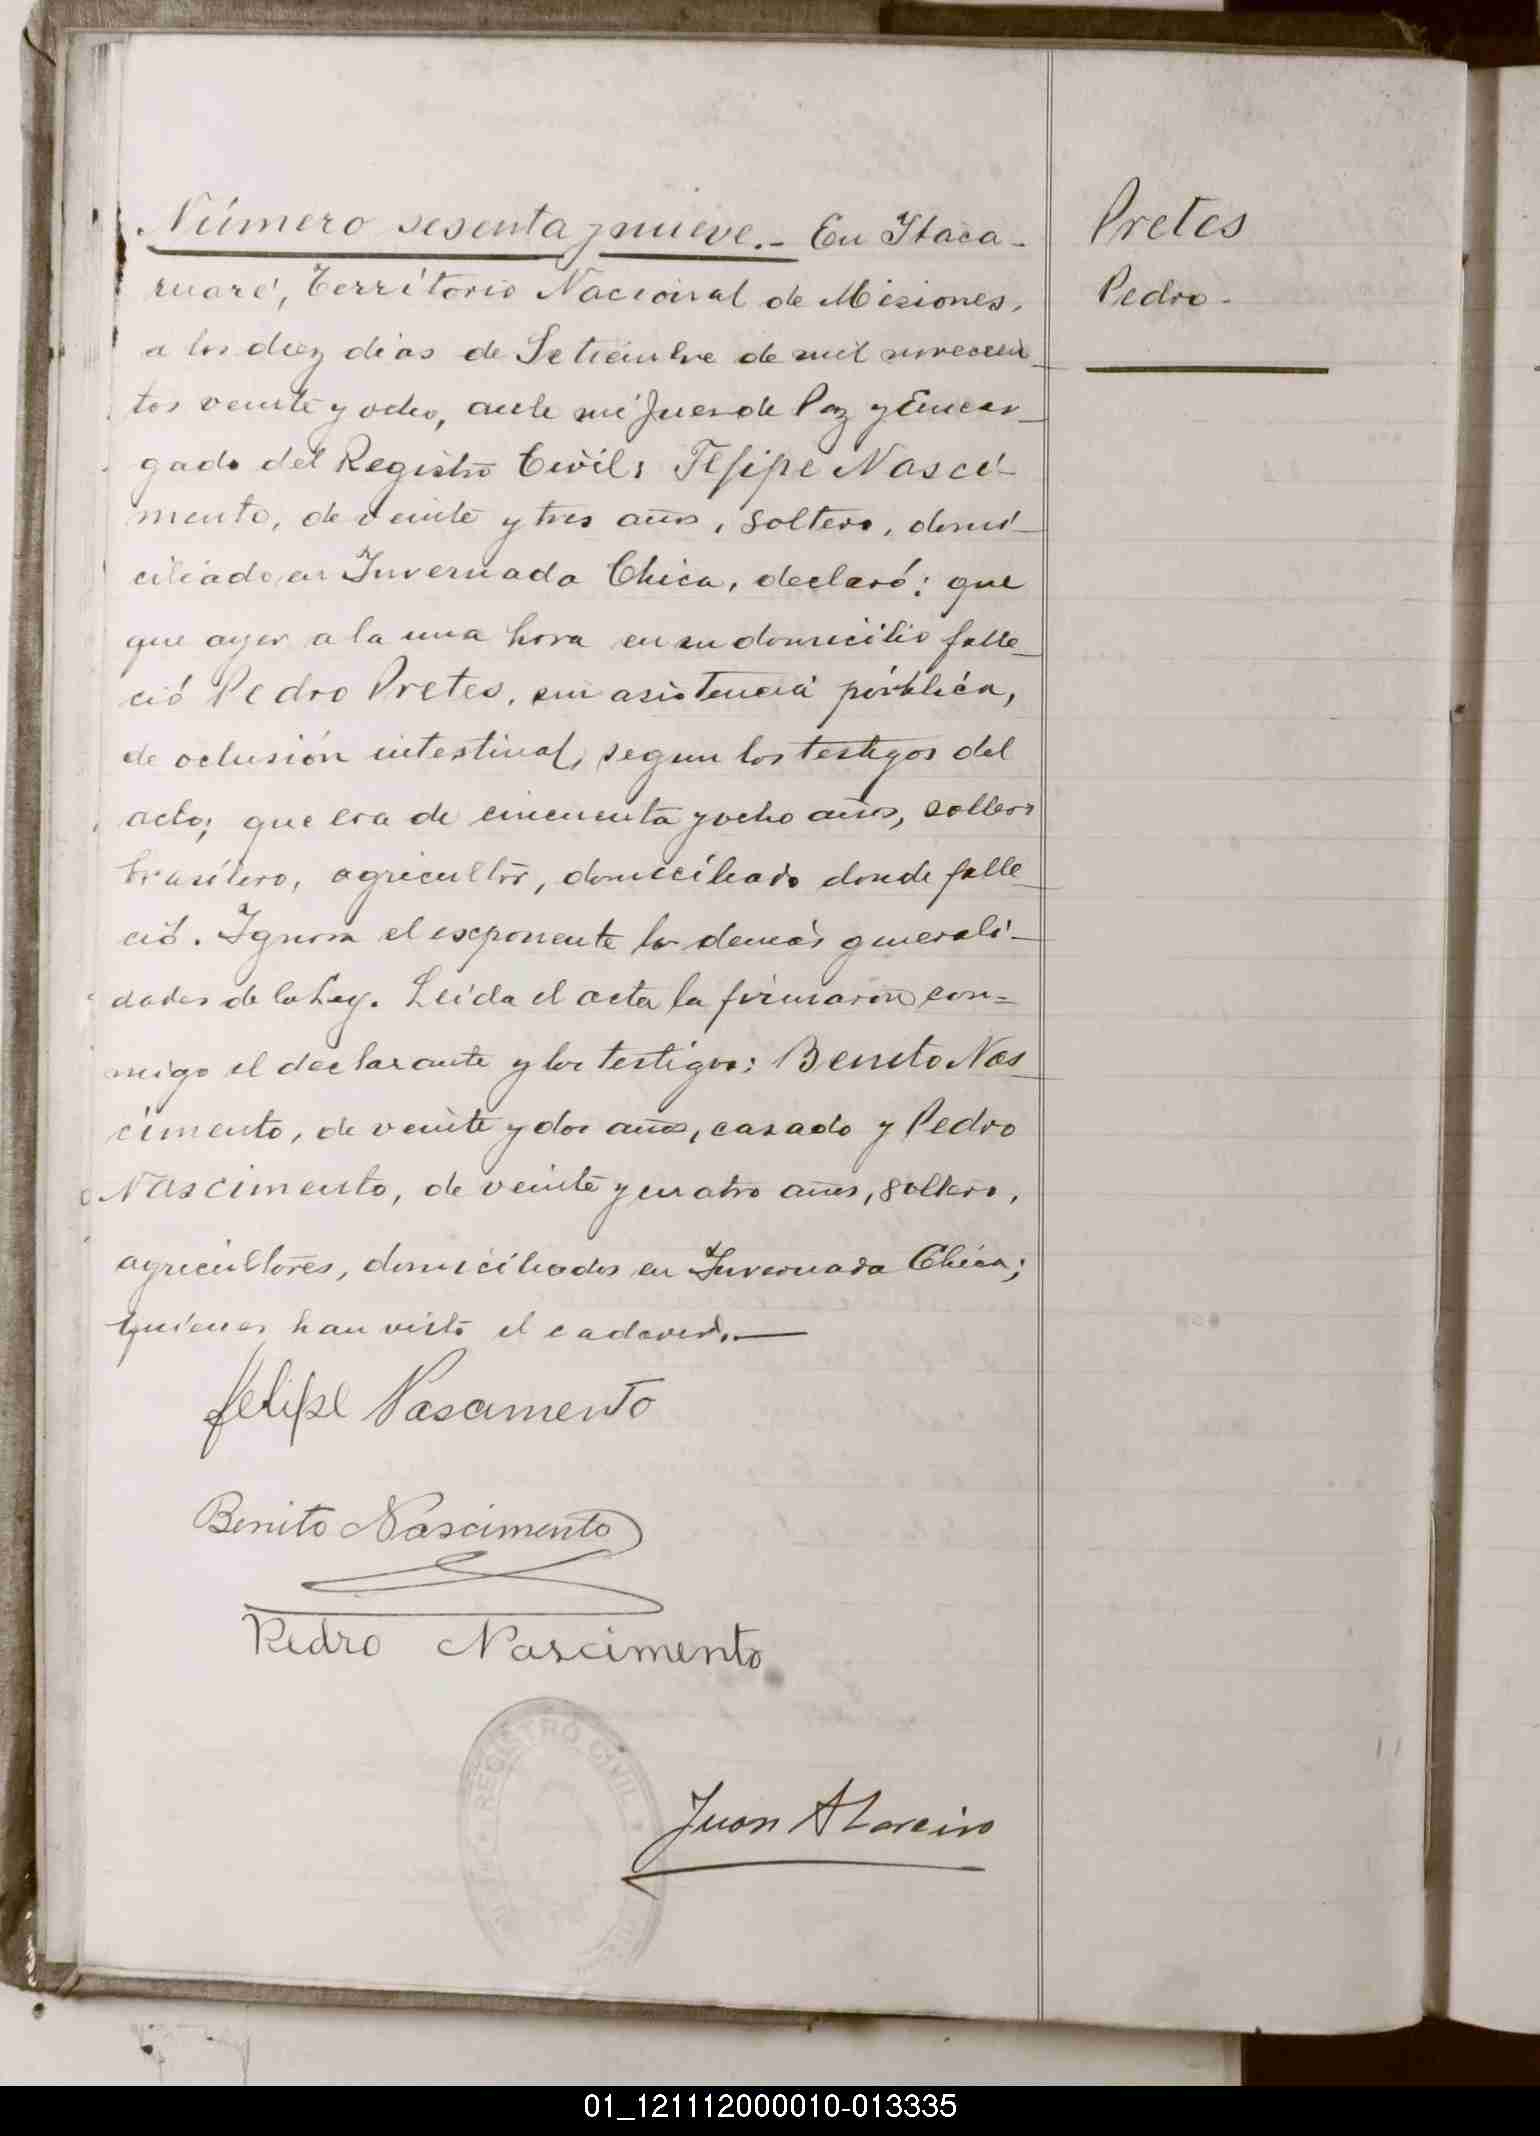 Número sesenta y nueve.- En Itaca-
ruaré, Territorio Nacional de Misiones,
a los diez dias de Setiembre de mil novecien
tos veinte y ocho, ante mi Juez de Paz y Encar-
gado del Registro Civil: Felipe Nasci-
mento, de veinte y tres años, soltero, domi-
ciliado en Invernada Chica, declaró: que
que ayer a la una hora en su domicilio falle-
ció Pedro Pretes, sin asistencia pública,
de oclusión intestinal, segun los testigos del
acto; que era de cincuenta y ocho años, soltero
brasilero, agricultor, domiciliado donde falle-
ció. Ignora el esponente las demás generali-
dades de la Ley. Leida el acta la firmaron con=
migo el declarante y los testigos: Benito Nas
cimento, de veinte y dos años, casado y Pedro
Nascimento, de veinte y cuatro años, soltero,
agricultores, domiciliados en Invernada Chica;
quienes han visto el cadaver.—
Felipe Nascimento
Benito Nascimento
Pedro Nascimento
REGISTRO CIVIL
Juan A
Pretes
Pedro-
01_121112000010-013335